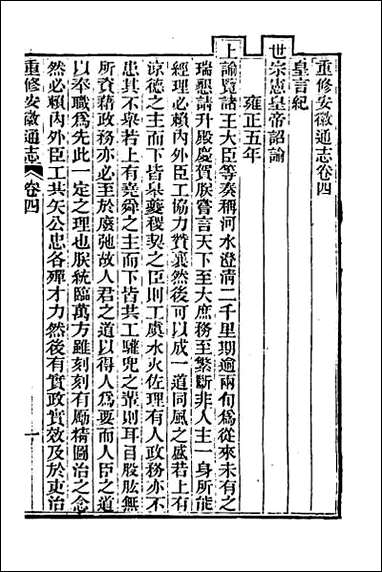 重修安徽通志卷四
皇言紀
世宗憲皇帝詔諭
雍正五年
上諭覽諸王大臣等奏稱河水澄清二千里期逾兩旬爲從來未有之
瑞懇請升殿慶賀朕嘗言天下至大庶務至繁斷非人主一身所能
經理必賴內外臣工協力贊襄然後可以成一道同風之盛若上有
諒德之主而下皆皋夔稷契之臣則工虞水火佐理有人政務亦不
患其不舉若上有堯舜之主而下皆共工驩兜之輩則耳目股肱無
所資藉政務亦必至於廢弛故人君之道以得人爲要而人臣之道
以奉職爲先此一定之理也朕統臨萬方雖刻刻有勵精圖治之念
然必賴內外臣工共矢公忠各殫才力然後有實政實效及於吏治
重修安徽通志 卷四 一